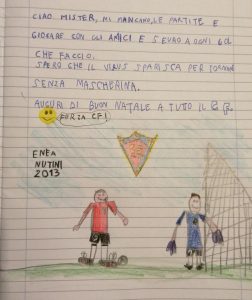 CIAO MISTER, MI MANCANO, LE PARTITE E
GIOCARE CON GLI AMICI E S EVRO A OGNI GOL
CHE FACCIO.
SPERO CHE IL VIRUS SPARISCA PER TORNARE
SENZA MASCHERINA.
AUGURI DI BUON NATALE A TUTO IL
FORZA CF!
ENEA
NUTINI
2013